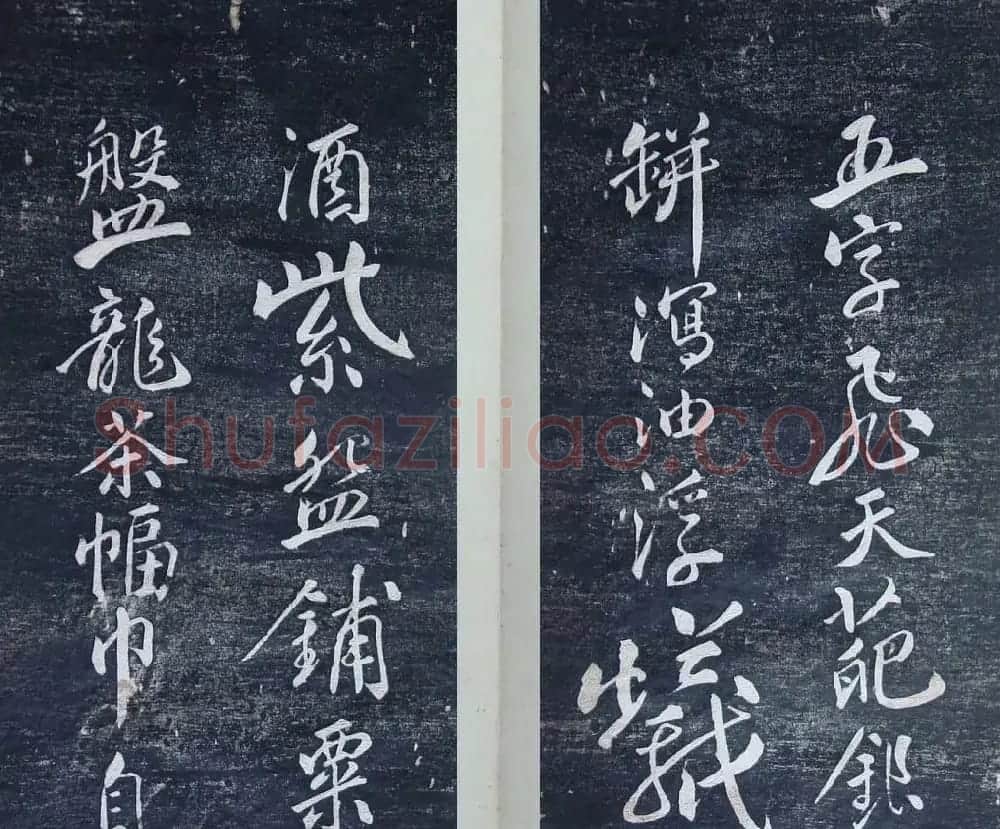 五字飛天葩銀
缾瀉油浮蟻
酒紫盌鋪粟
盤龍茶幅巾自
Shufaziliao.COM